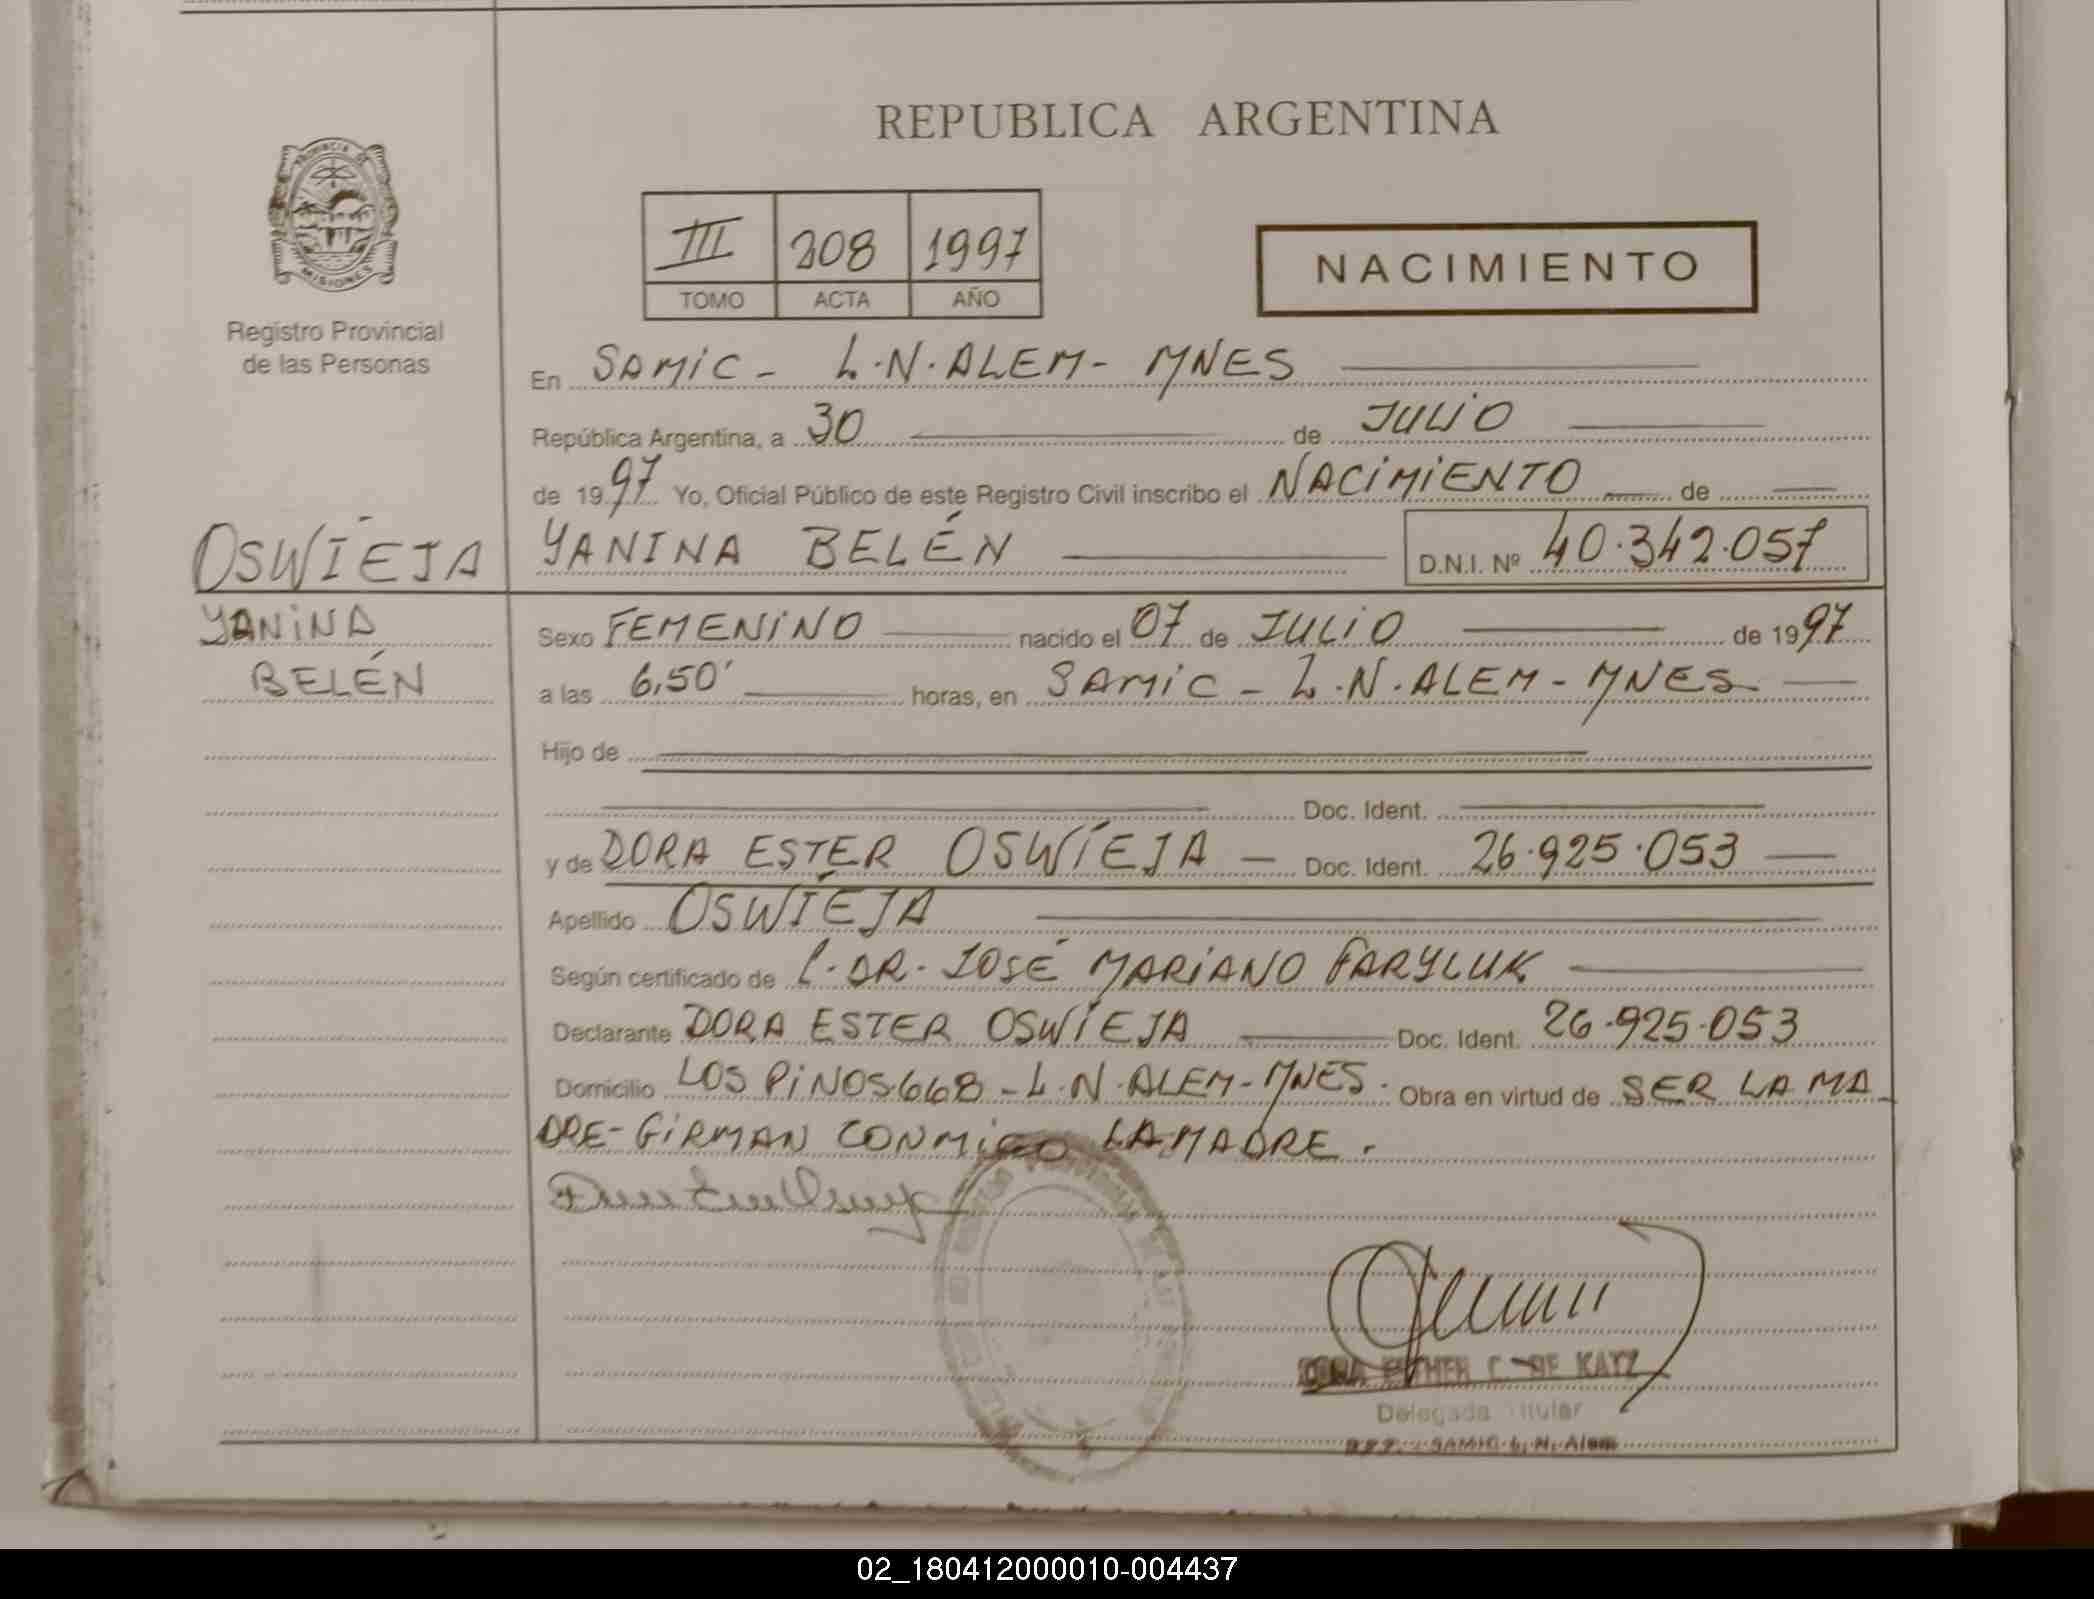 REPUBLICA ARGENTINA
PROVINCIA DE
MISIONES
Registro Provincial
de las Personas
III 208 1997
TOMO ACTA AÑO
NACIMIENTO
En SAMIC - L.N.ALEM- MNES
República Argentina, a 30 de JULIO
de 1997 Yo, Oficial Público de este Registro Civil inscribo el NACIMIENTO de
OSWIEJA
YANINA
BELÉN
YANINA BELÉN D.N.I. Nº 40.342.057
Sexo FEMENINO nacido el 07 de JULIO de 1997
a las 6,50' horas, en SAMIC - L.N.ALEM - MNES
Hijo de
Doc. Ident.
y de DORA ESTER OSWIEJA - Doc. Ident. 26.925.053
Apellido OSWIEJA
Según certificado de DR. JOSÉ MARIANO FARYLUK
Declarante DORA ESTER OSWIEJA Doc. Ident. 26.925.053
Domicilio LOS PINOS 668 - L.N.ALEM-MNES. Obra en virtud de SER LA MA
DRE- FIRMAN CONMIGO LA MADRE.
DORA ESTHER C. DE KATZ
Delegada Titular
SAMIC L. N. Alem
02_180412000010-004437